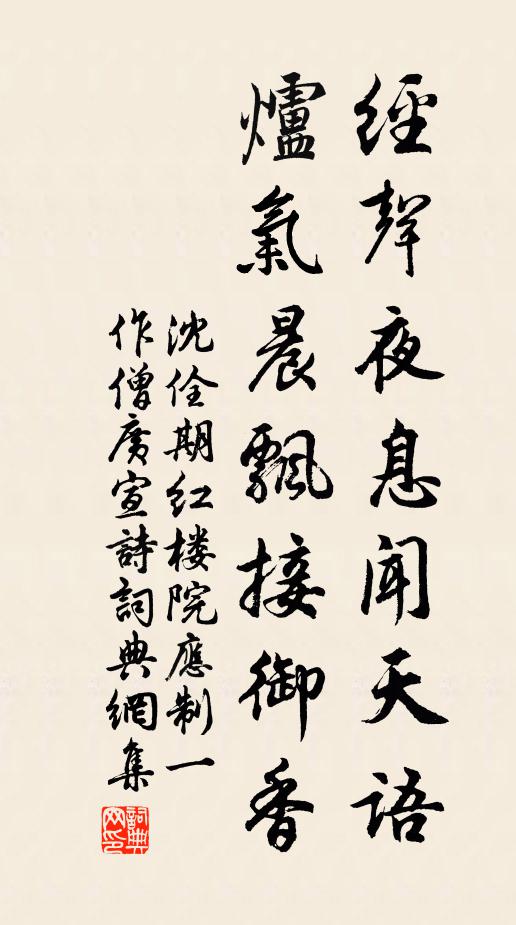 經聲夜息聞天語
爐氣晨飄接御香
沈佺期红楼院應制一
作僧廣宣詩詞典網集
詞典
网印